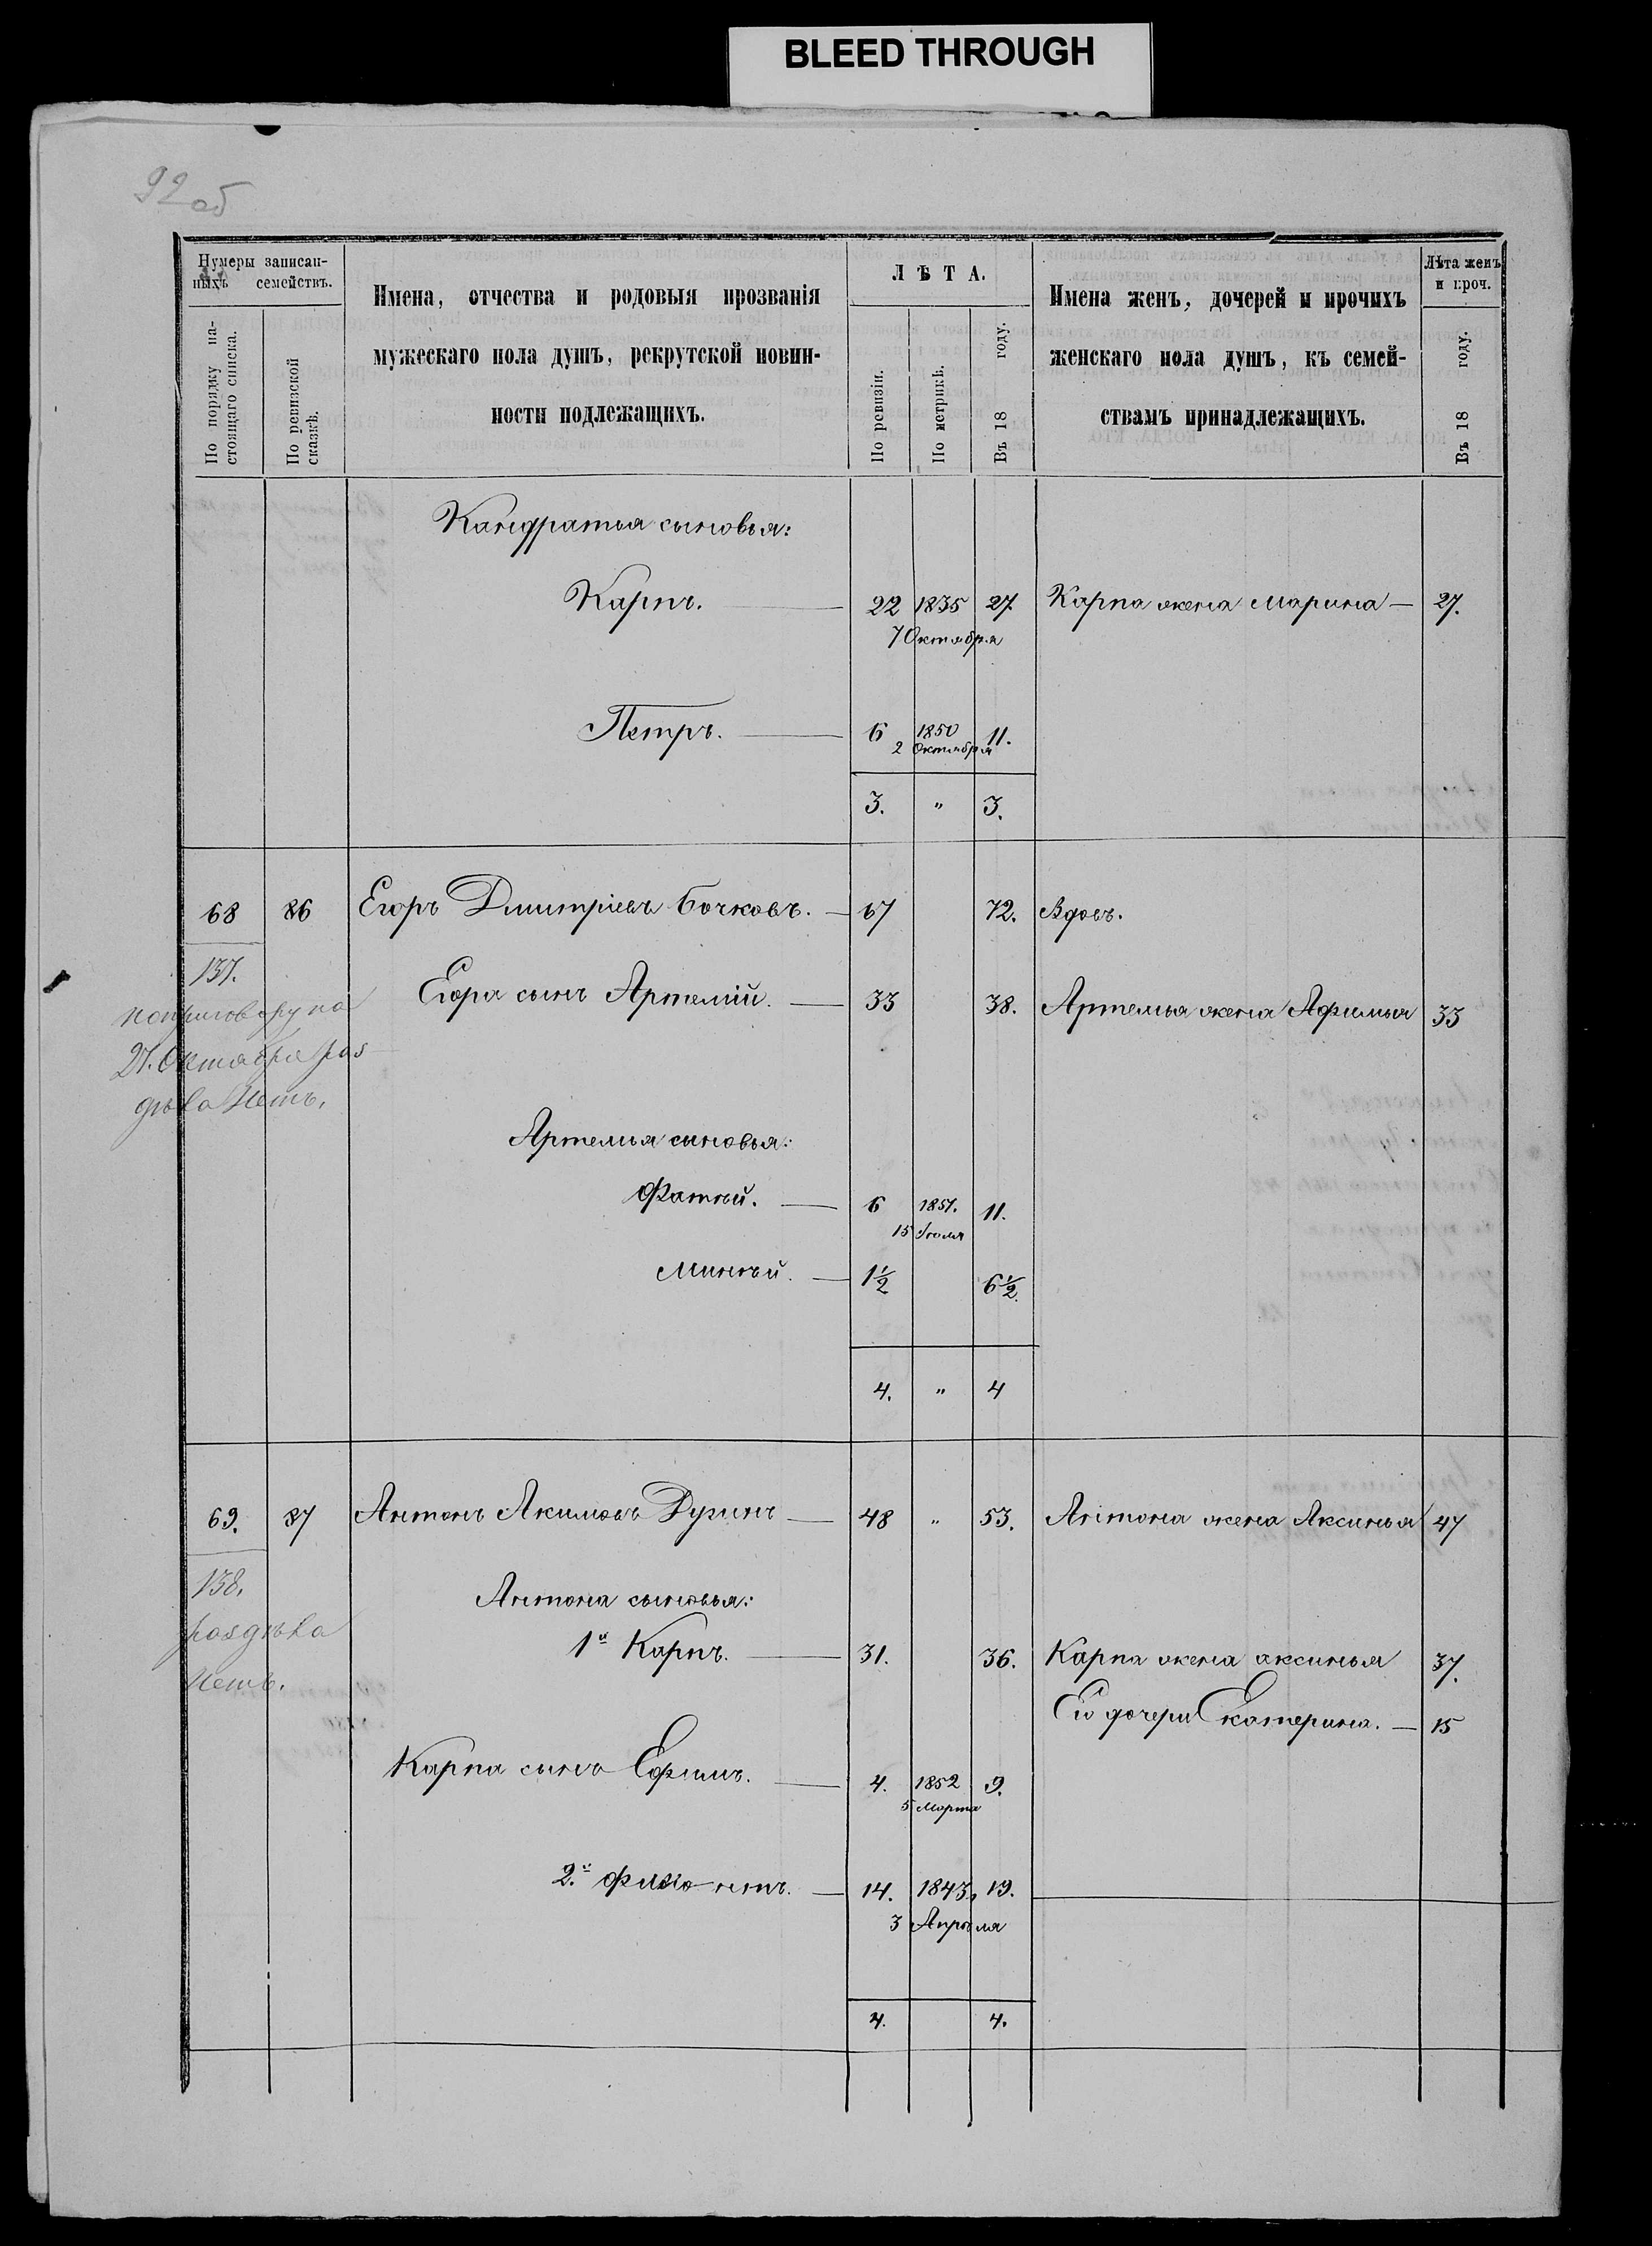 BLEED THROUGH
92 об
Нумеры записан-
ныхъ семействъ.
По порядку на-
стоящаго списка.
По ревизской
сказкѣ.
Имена, отчества и родовыя прозванія
мужескаго пола душъ, рекрутской повин-
ности подлежащихъ.
ЛѢТА.
По ревизіи.
По метрикѣ.
Въ 18 году.
Имена женъ, дочерей и прочихъ
женскаго пола душъ, къ семей-
ствамъ принадлежащихъ.
Лѣта женъ
и проч.
Въ 18 году.
Кандратья сыновья:
Карпъ. 22 1835 27 Карпа жена Марина 27.
7 Октября
Петръ. 6 1850 11.
2 Октября
3. " 3.
68 86 Егоръ Дмитріевъ Бочковъ. 67 72. Вдовъ.
137.
Егора сынъ Артемій. 33 38. Артемья жена Афимья 33
по приговору на
27. Октября раз
дѣла Нетъ.
Артемия сыновья:
Фатѣй. 6 1851. 11.
15 Іюля
Минѣй. 1½ 6½.
4. " 4
69. 87 Антонъ Акимовъ 48 " 53. Антона жена Аксинья 47
138.
Антона сыновья:
раздѣла
1й Карпъ. 31. 36. Карпа жена аксинья 37.
Нетъ.
Ею дочери Екатерина. 15
Карпа сынъ Ефимъ. 4. 1852 9.
5 Марта
2.й 14. 1843. 19.
3 Апрѣля
4. 4.